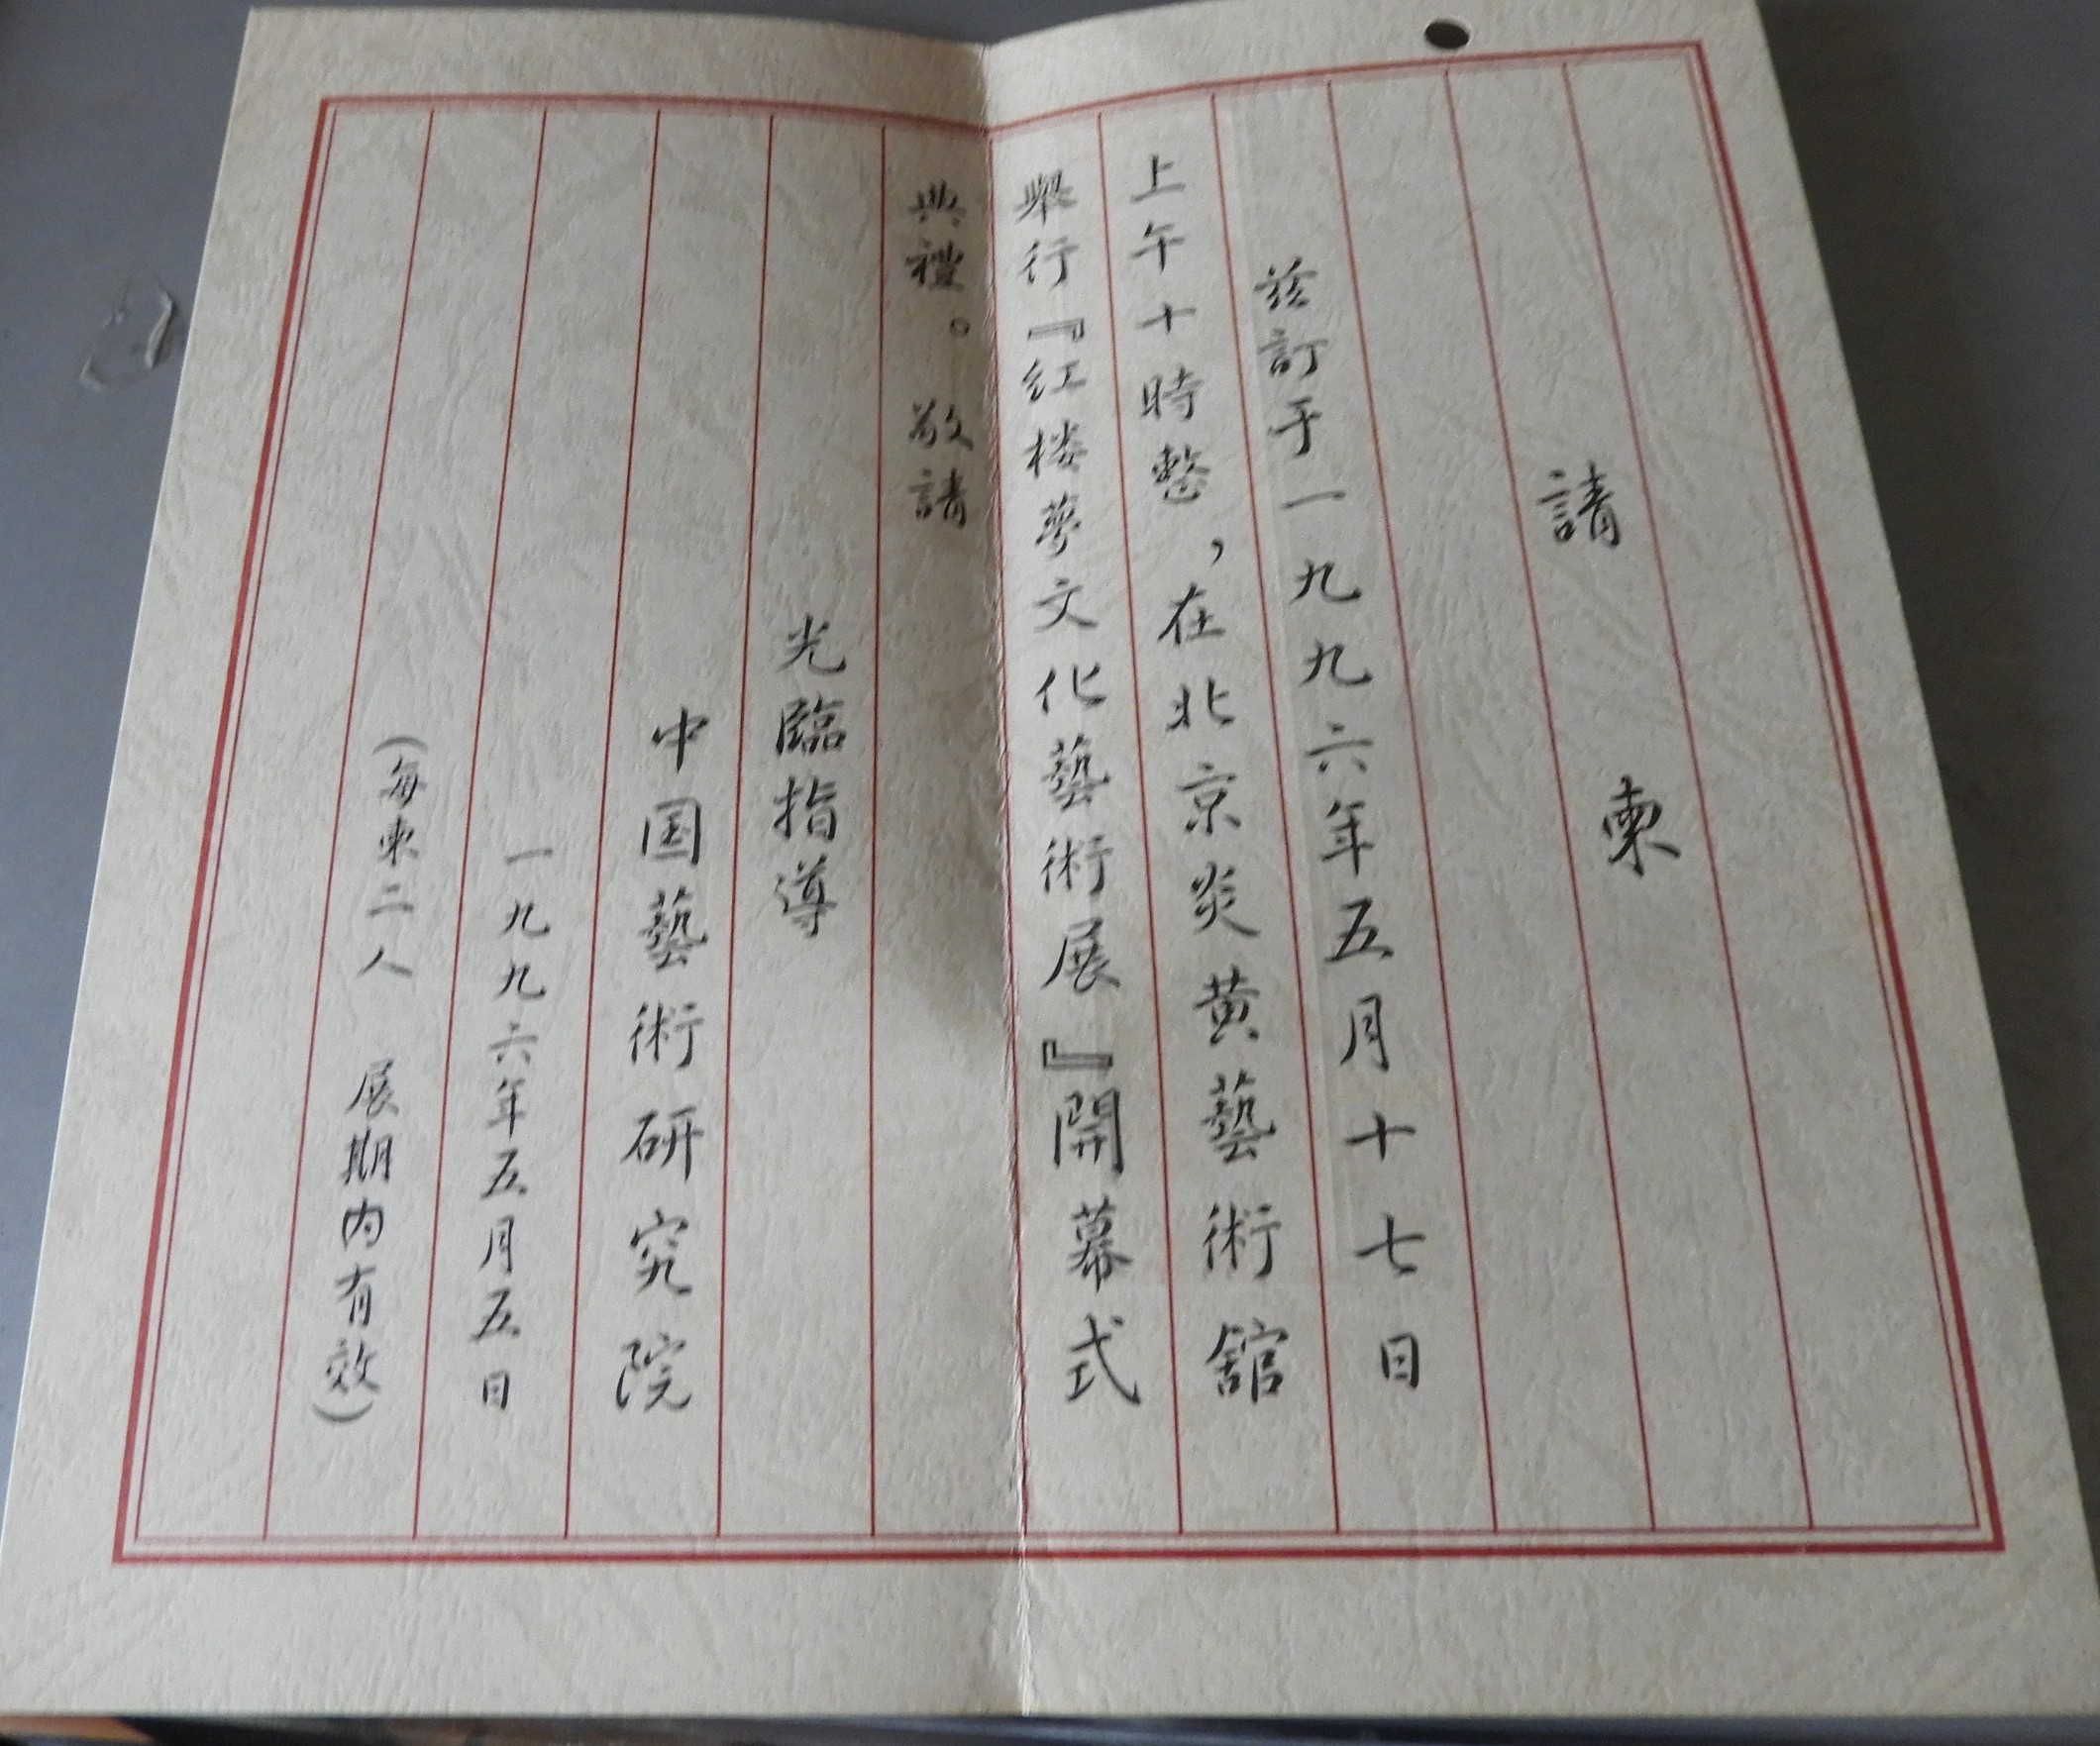 請柬
兹訂于一九九六年五月十七日
上午十時整，在北京炎黄藝術舘
舉行『红楼夢文化藝術展』開幕式
典禮。敬請
光臨指導
中国藝術研究院
一九九六年五月五日
（每柬二人 展期内有效）